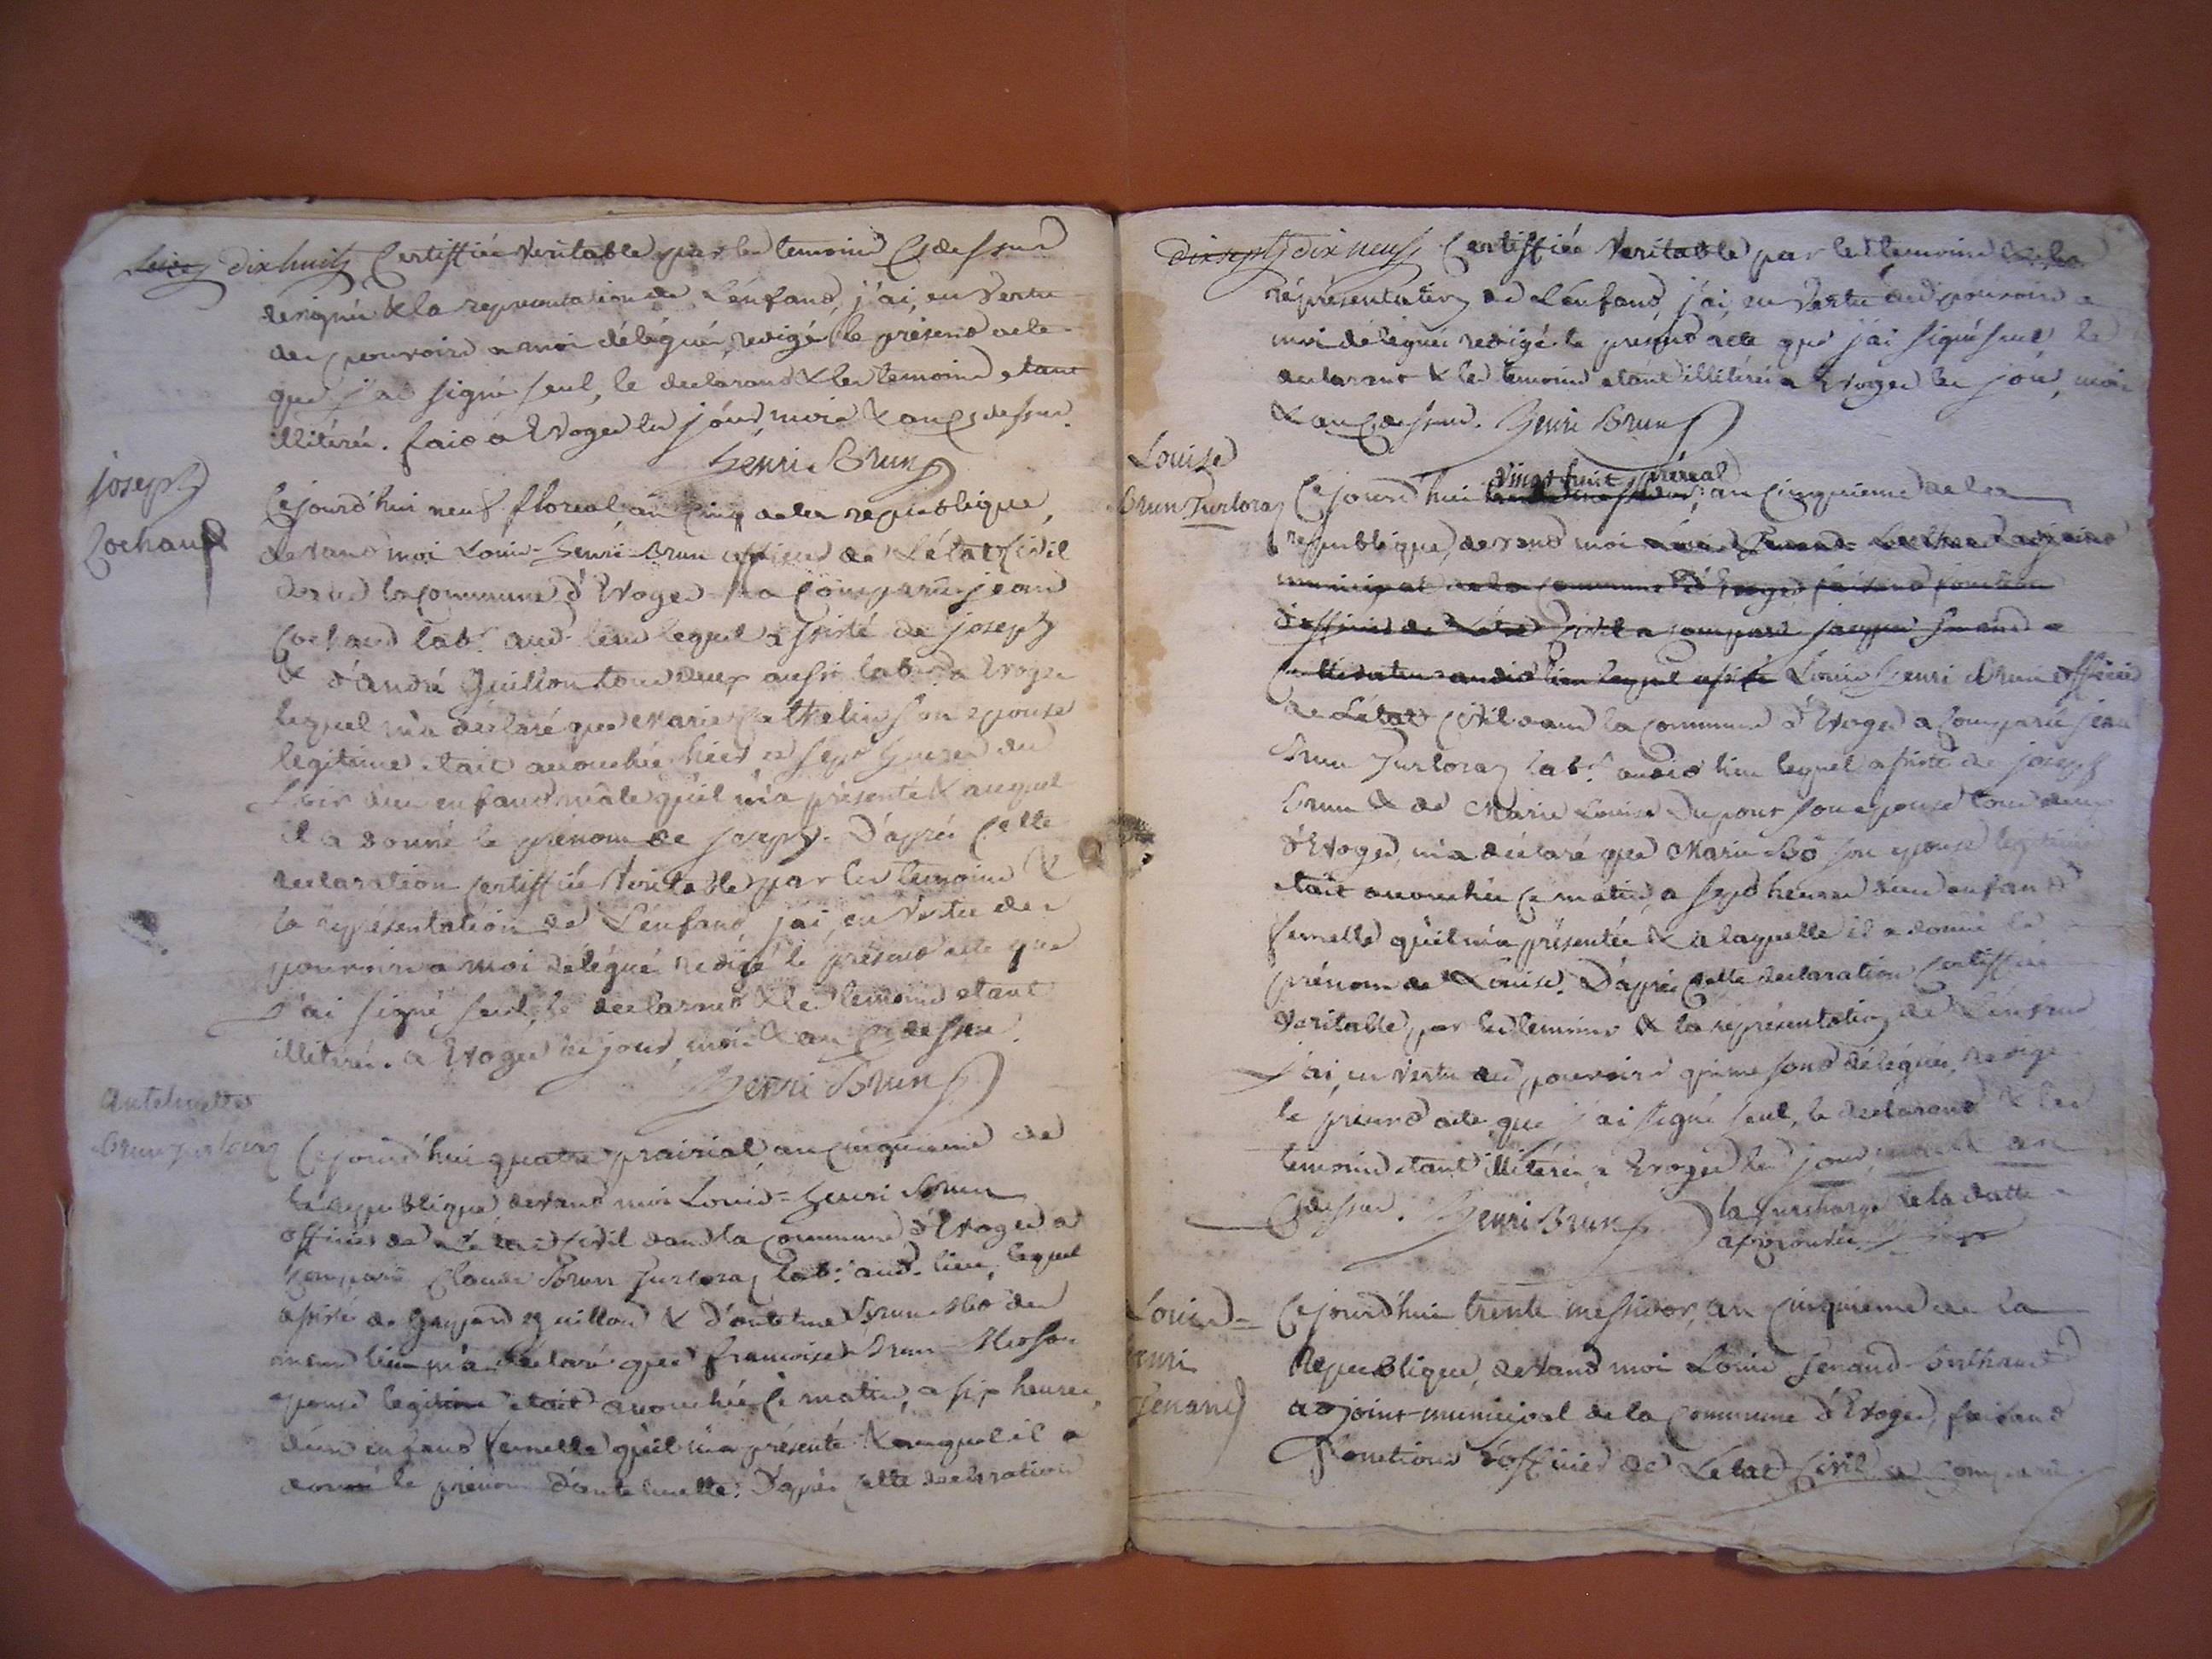 Seize dixhuit Certiffiée Veritable par les temoins Cydessus
designés & la representation de L'enfand, j'ai, en Vertu
des pouvoirs a moi délégués, redigé le présend acte
que j'ai signé seul, le declarand & les temoins etant
illitérés. faid a Evoges les jour, mois & an cydessus.
henri Brun
joseph
Cochand
Cejourd'hui neuf floreal an cinq de la republique,
devand moi Louis-henri Brun officier de L'état Civil
dans la commune d'Evoges a comparu jean
Cochand lab.r aud. lieu lequel assisté de joseph
& d'andré Guillon tous deux aussi lab.rs a Evoges
lequel m'a declaré que Marie Cathelin son epouse
legitime etait accouchée hier a sept heures du
soir d'un enfand mâle qu'il m'a présenté & auquel
il a donné le prénom de joseph. D'après cette
declaration certiffiée Veritable par les temoins &
la représentation de L'enfand, j'ai, en Vertu des
pouvoirs a moi délégués redigé le présend acte que
j'ai signé seul, le declarand & les temoins etant
illiterés. a Evoges les jour, mois & an cydessus.
henri Brun
antelmette
Brun jurloray
Cejourd'hui quatre prairial, an cinquieme de
la republique, devand moi Louis-henri Brun
officier de L'etat Civil dans la commune d'Evoges a
comparu Claude Brun jurloray lab.r aud. lieu, lequel
assisté de Gaspard Guillon & d'antelme Brun du
meme lieu m'a declaré que francoise Brun
epouse legitime etait accouchée ce matin, a six heures,
d'un enfand femelle qu'il m'a présenté & auquel il a
donné le prénom d'antelmette. D'après cette declaration
dix sept dix neuf Certiffiée Veritable par les temoins & la
réprésentation de L'enfand, j'ai, en Vertu des pouvoirs a
moi délégués redigé le présend acte que j'ai signé seul, le
declarant & les temoins etant illitérés a Evoges les jour, mois
& an cydessus. henri Brun
Louise
Brun Jurloray
vingt huit prereal
Cejourd'hui an cinquieme de la
republique, devand moi Louis Senand Berthand adjoint
municipal de la commune d'Evoges faisand fonction
d'officier de L'état Civil a comparu jacques Senand
cultivateur audid lieu lequel assisté Louis henri Brun officier
de L'état Civil dans la commune d'Evoges a comparu jean
Brun Jurloray lab.r audid lieu lequel assisté de joseph
Brun & de Marie Louise Dupont son epouse tous deux
d'Evoges, m'a déclaré que Marie Bo son epouse legitime
etait accouchée ce matin, a sept heures d'un enfand
femelle qu'il m'a présentée & a laquelle il a donné le
prénom de Louise. D'après cette declaration certiffiée
Veritable par les temoins & la représentation de L'enfand
j'ai, en Vertu des pouvoirs qui me sond délégués, redigé
le présend acte que j'ai signé seul, le declarand & les
temoins etant illitérés a Evoges les jour, mois & an
Cydessus. henri Brun la surcharge de la datte
approuvée
Louis-
henri
Senand
Cejourd'hui trente messidor, an cinquieme de la
Republique, devand moi Louis Senand-Berthand
adjoint-municipal de la commune d'Evoges, faisand
fonctions d'officier de L'etat Civil a comparu